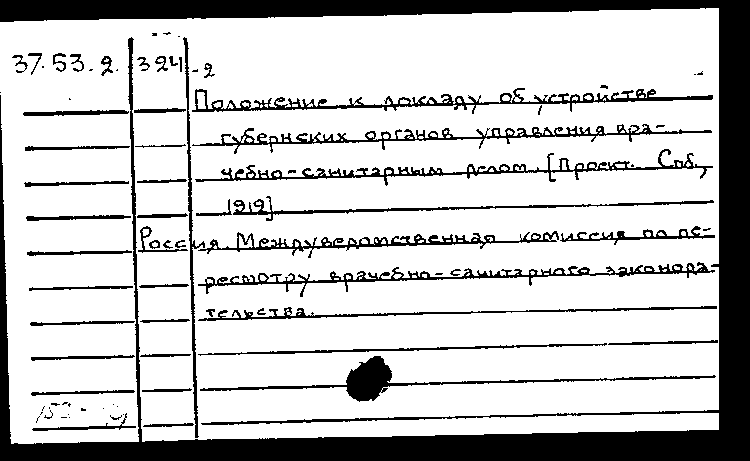 37.53.2. 324-2
Положение к докладу об устройстве
губернских органов управления вра-
чебно-санитарным делом. [Проект. Спб.,
1912]
Россия. Междуведомственная комиссия по пе-
ресмотру врачебно-санитарного законода-
тельства.